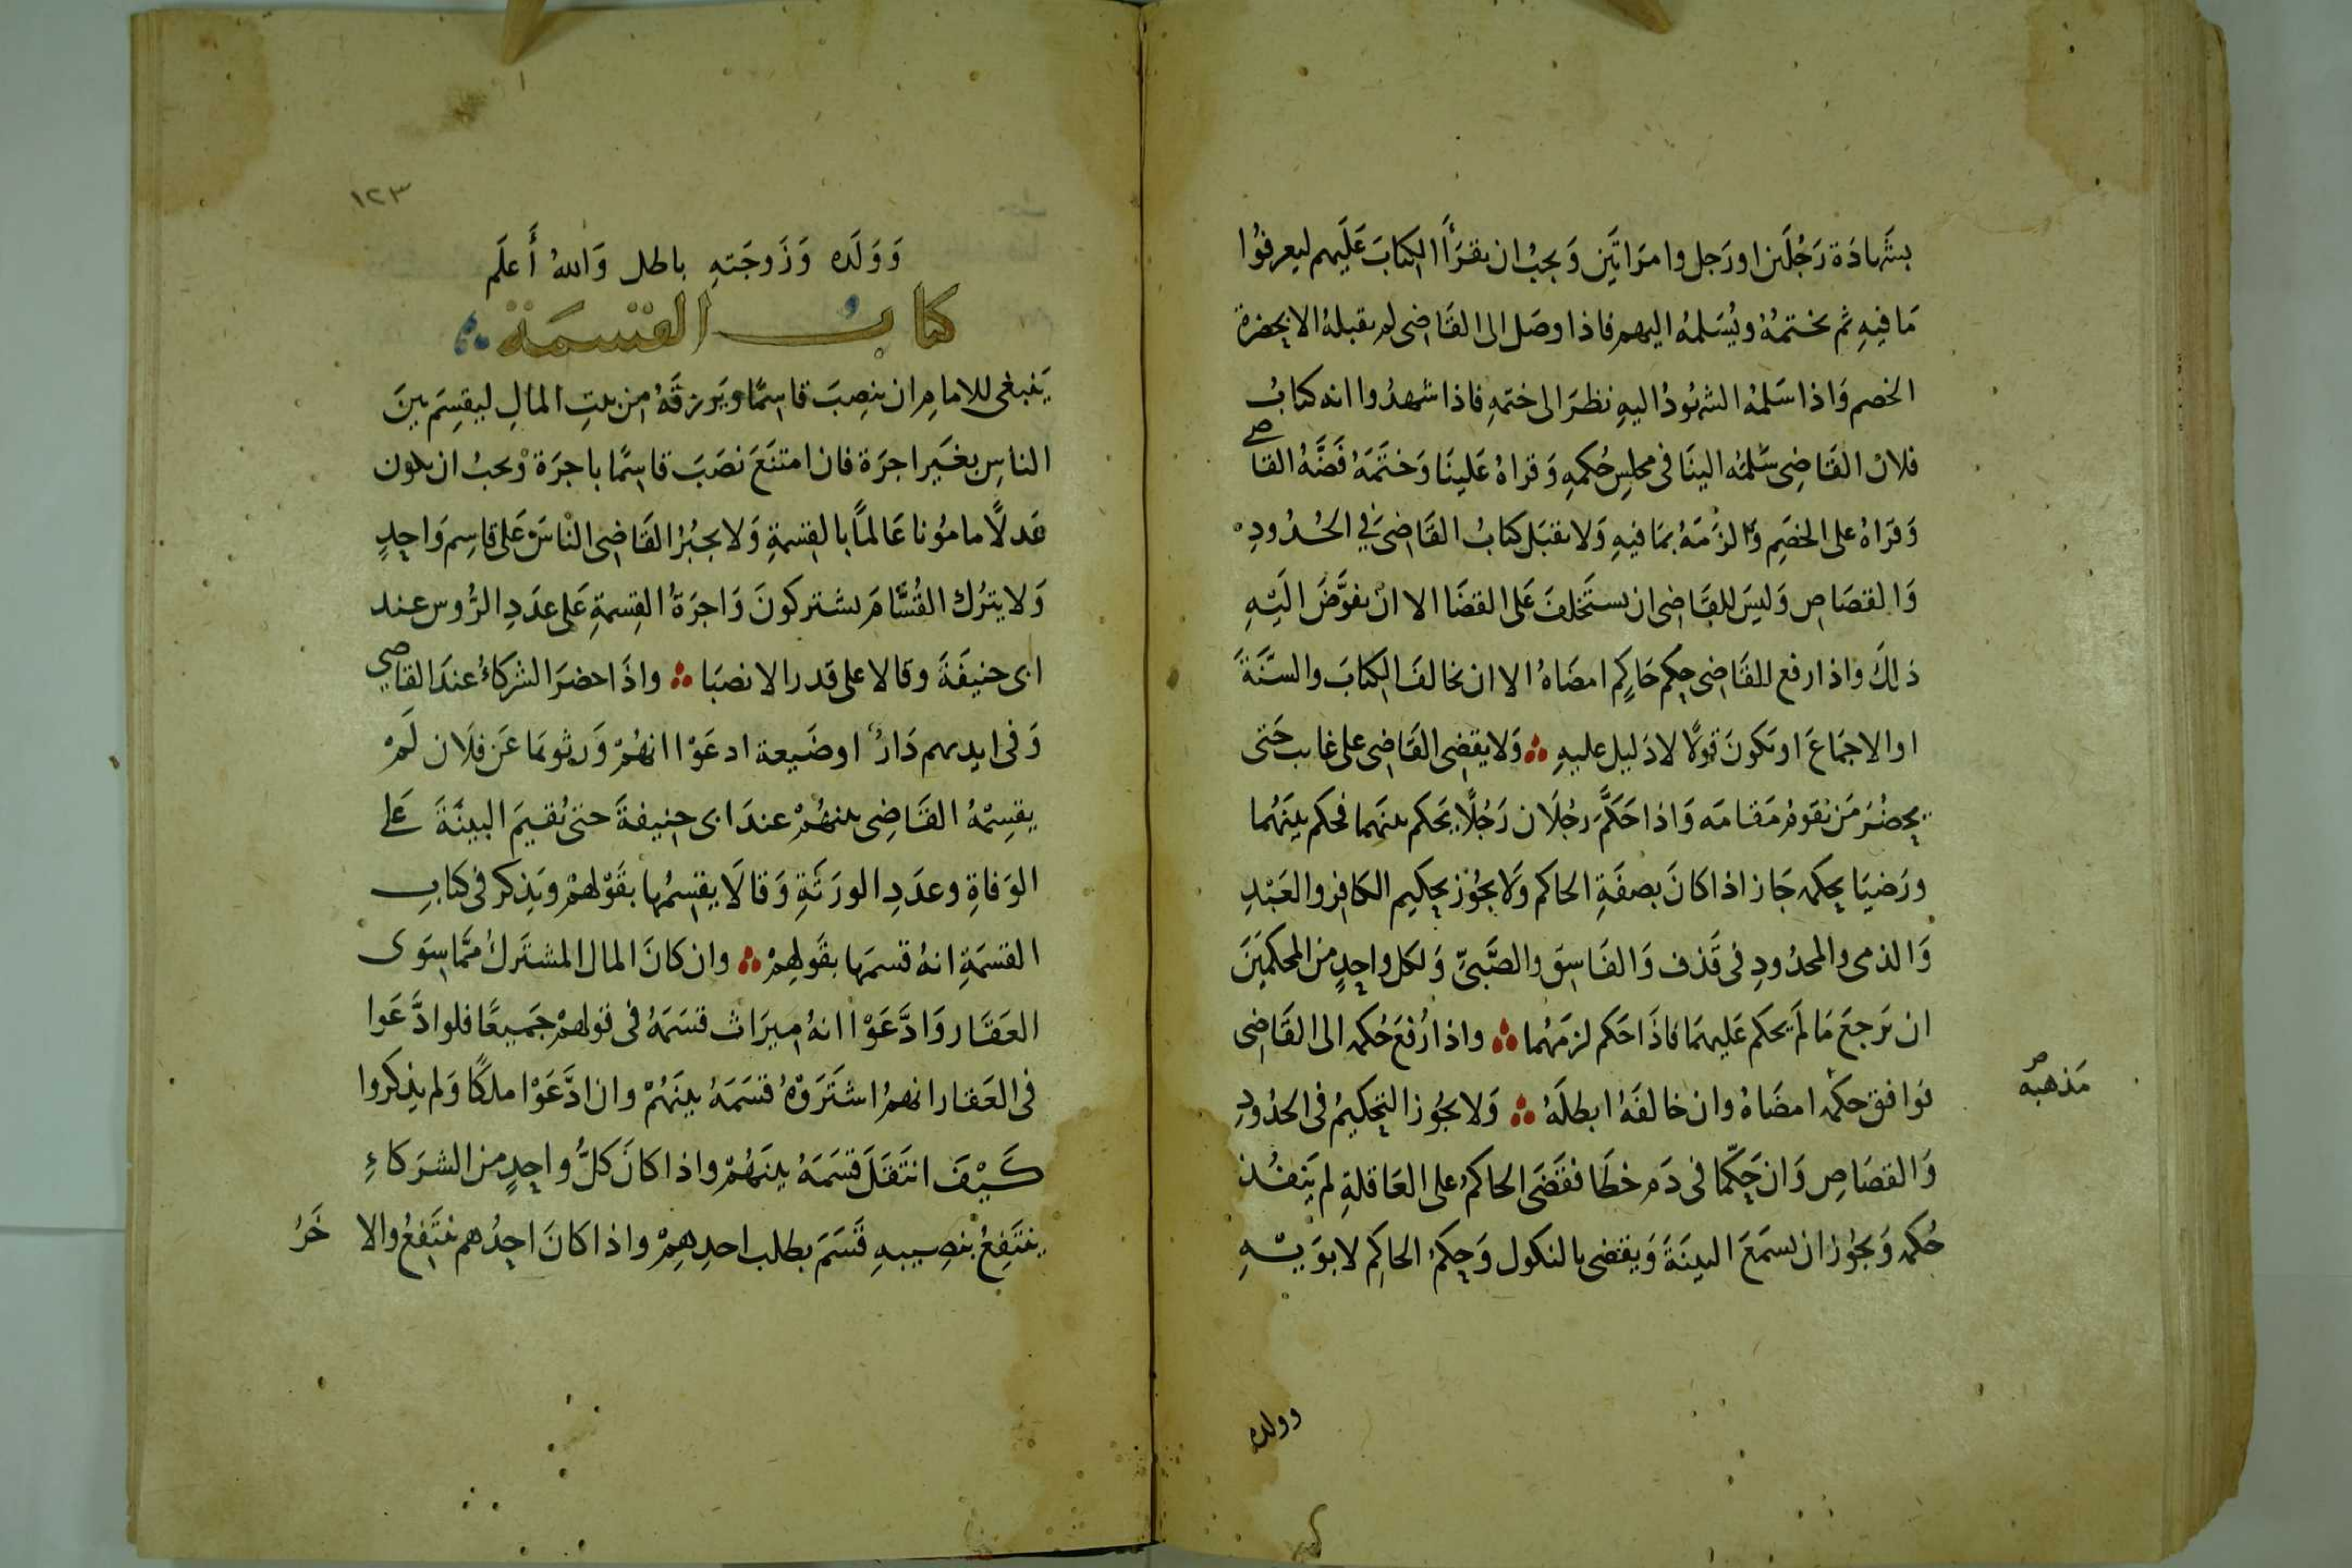 بشَهادَة رَجُلَين اورَجل وامرَاتَين وَيجبُ ان يقرَأ الكتابَ عَلَيهم ليعرفوُا
مَا فيهِ ثم يختمُهُ ويُسَلمهُ اليهم فاذا وصَل الى القَاضى لم يقبلهُ الا بحضرة
الخصم وَاذا سَلمهُ الشهوُدُ اليهِ نظرَ الى ختمهِ فاذا شهدُوا انه كتابُ
فلان القَاضِى سَلمَهُ الينَا فى مجلسِ حُكمهِ وَقراهُ عَلينَا وَختَمَهُ فَضَّهُ القاضى
وَقرَاهُ على الخصَمِ وَالزَمَهُ بمَا فيهِ وَلا يقبَل كتابُ القَاضىَ فى الحُدُودِ
وَالقصَاصِ وَليسَ للقَاضى ان يستَخلفَ عَلى القضَا الا انْ يفوَّضَ اليَهِ
ذلكَ واذا رفع للقَاضى حكم حَاكِم امضَاهُ الا ان يخالفَ الكتابَ والسَّنَةَ
او الاجمَاعَ او يَكونَ قولًا لا دَليل عليهِ ∴ وَلا يقضِى القَاضِى على غايب حَتى
يحضُرَ مَن يَقومُ مَقامَه وَاذا حَكَّمَ رجُلَان رَجُلًا يحَكم بينهَما فحكم بينَهُما
ورَضيَا بحكمه جَاز اذا كانَ بصفَةِ الحاكم وَلَا يجُوز تحكيم الكافِر والعَبْدِ
وَالذمى والمحدُودِ فى قَذف وَالفَاسِق والصَّبىِّ وَلكل واحِدٍ من المحكمَينَ
ان يَرجعَ مَا لَم يحكم عَليهمَا فاذَا حَكم لزمَهُما ∴ واذا رُفعَ حُكمه الى القَاضى
فوَافق حكمه امضَاهُ وان خالفَهُ ابطلَهُ ∴ وَلا يجُوز التحكيمُ فى الحدُودِ
مَذهبه
وَالقصَاصِ وَان حَكّمَا فى دَم خطَا فقَضَى الحاكمُ على العَاقلةِ لم يَنفُذ
حُكمه وَيجُوز ان يسمَعَ البينَةَ وَيقضى بالنكول وَحكمُ الحاكِم لابوَيهِ
وولده
١٢٣
وَوَلَده وَزَوجَتهِ باطل وَاللهُ أَعلَم
كتاب القسمَة
يَنبغى للامامِ ان ينصِبَ قاسِمًا ويَرزقَهُ من بيتِ المالِ ليقسِمَ بينَ
الناسِ بغَيرِ اجرَة فان امتنَعَ نصَبَ قاسِمًا باجرَة وَيجبُ ان يكون
عَدلًا مامُونا عَالمًا بالقِسمةِ وَلا يجبُرُ القَاضِى النَاسَ عَلى قاسِم وَاحِدٍ
وَلا يترُك القُسَّامَ يشتركونَ وَاجرَةُ القِسمةِ عَلى عدَدِ الرُّوس عند
ابى حنيفَةَ وقالا على قدر الانصبَا ∴ واذَا حضرَ الشركاءُ عندَ القاضي
وَفى ايديهم دَارٌ او ضَيعة ادعَوْا انهُمْ وَرِثوهَا عَن فلَان لَمْ
يقسِمْهُ القَاضِى بينهُمْ عندَ ابى حنيفةَ حتى تُقيمَ البينَةَ عَلى
الوَفاةِ وعدَدِ الورَثَةِ وَقالَا يقسِمُها بقَوْلهمْ ويَذكر فى كتابِ
القسمَةِ انهُ قسمَها بقَولِهمْ ∴ وان كانَ المال المشتَركُ ممَّا سِوَى
العَقَار وَادَّعَوْا انهُ ميرَاث قسَمَهُ فى قولهمْ جَميعًا فلو ادَّعَوا
فى العَقار انهمُ اشتَرَوْهُ قسَمَهُ بينَهُمْ وان ادَّعَوْا ملكًا وَلم يذكروا
كَيْفَ انتَقَلَ قسَمَهُ بينَهُمْ واذا كانَ كلُّ واحِدٍ من الشرَكاءِ
ينتَفِعُ بنصِيبهِ قَسَمَ بطلب احدِهِمْ واذا كانَ احِدُهم ينتَفعُ والاخَرُ